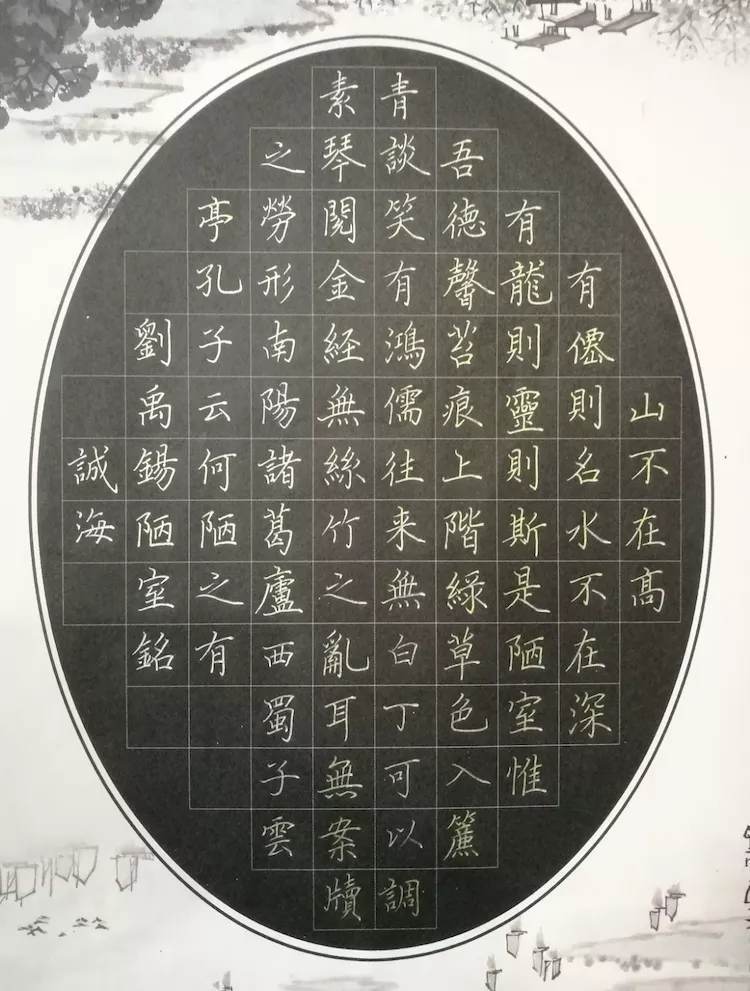 山不在高
有僊則名水不在深
有龍則靈則斯是陋室惟
吾德馨苔痕上階綠草色入簾
青談笑有鴻儒往来無白丁可以調
素琴閱金經無絲竹之亂耳無案牘
之勞形南陽諸葛廬西蜀子雲
亭孔子云何陋之有
劉禹錫陋室銘
誠海